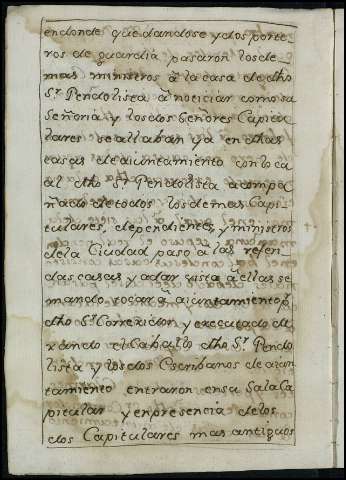 endonde quedandose y dos porte-
ros de guardia pasaron los de
mas ministros a la casa de dho
Sr. Pendolista a noticiar como su
Señoria y los dos Señores Capitu
lares se allaban ya en dhas
casas de aiuntamiento con lo
al dho Sr. Pendolista acompa
ñado de todos los demas Capi
tulares, dependientes, y ministros
de la Ciudad paso a las referi
das casas y a dar vista a ellas se
mando tocar a aiuntamiento p.
dho Sr. Correxidor y executado de
xando el Caballo dho Sr. Pendo
lista y los dos Escribanos de aiun
tamiento entraron en su Sala Ca
pitular y en presencia de los
dos Capitulares mas antiguos